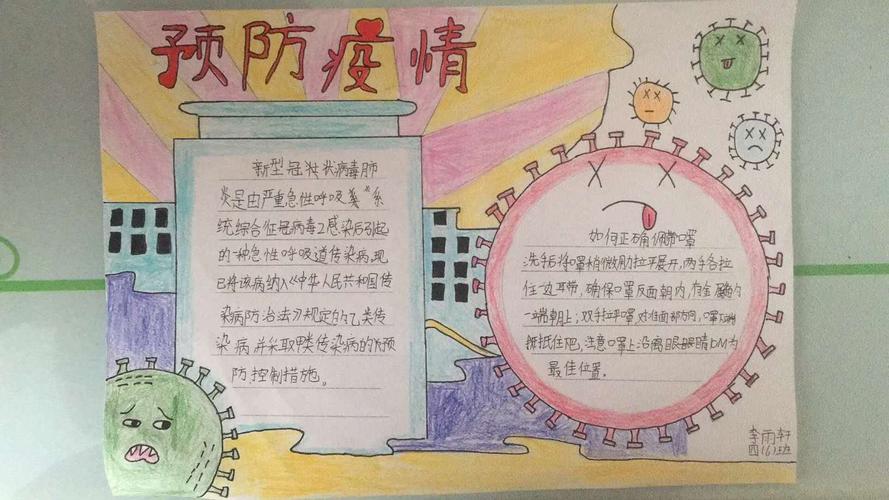 预防疫情
新型冠状病毒肺
炎是由严重急性呼吸系
统综合征冠病毒2感染后引起
的一种急性呼吸道传染病,现
已将该病纳入《中华人民共和国传
染病防治法》规定的乙类传
染病,并采取甲类传染病的预
防,控制措施。
如何正确佩戴口罩
洗手后将口罩稍微拉平展开,两手各拉
住一边耳带,确保口罩反面朝内,有金属的
一端朝上;双手拉口罩对准面部方向,口罩下端
抵住,注意口罩上沿离眼睛DM为
最佳位置。
李雨轩
四(6)班